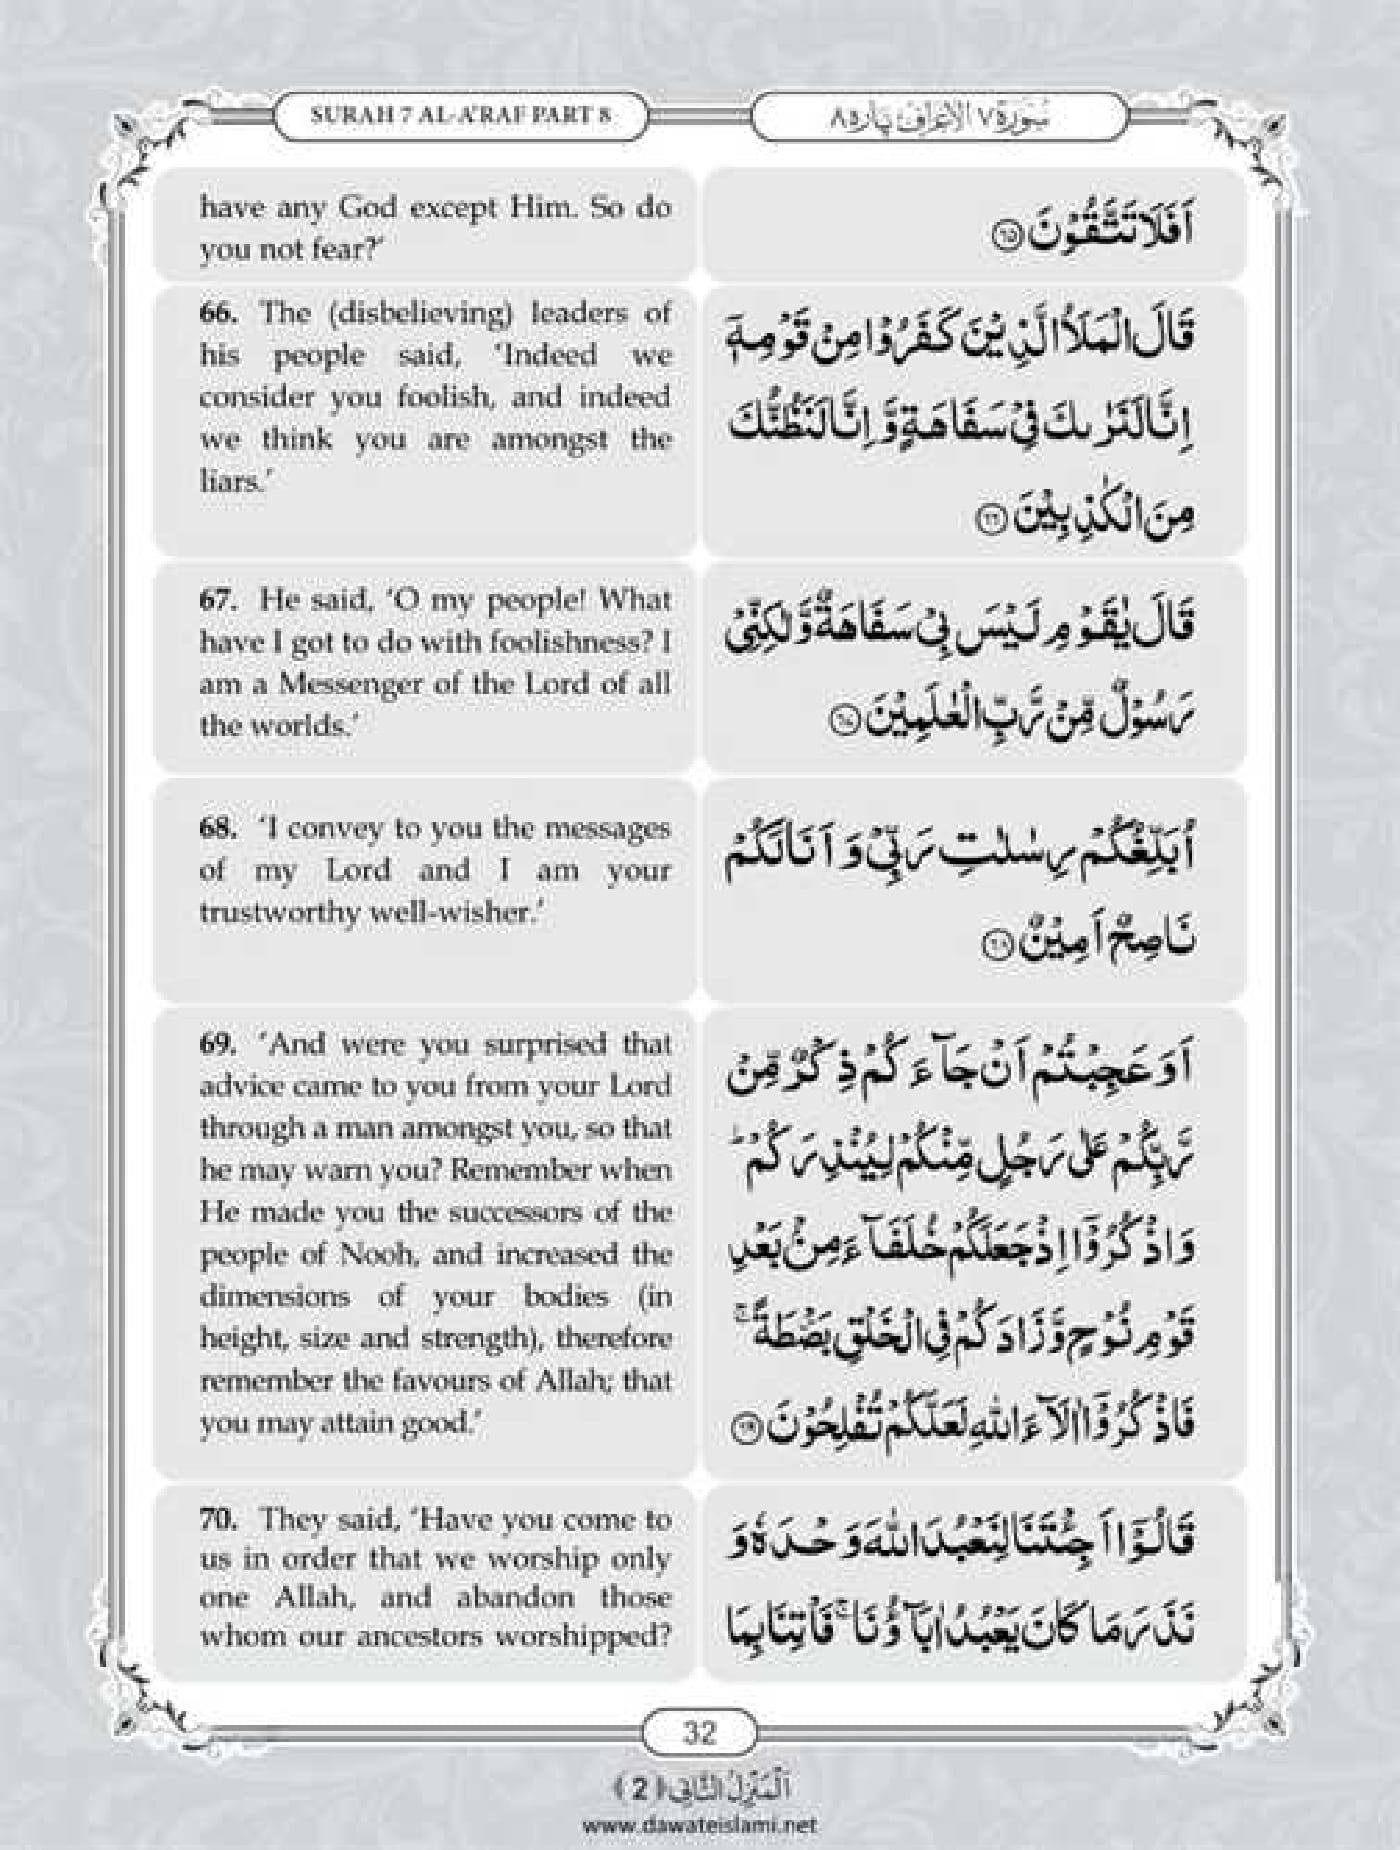 SURAH 7 AL-A'RAF PART 8
سُوْرَة ٧ الاعراف پارہ ٨
have any God except Him. So do
you not fear?'
اَفَلَا تَتَّقُوْنَ ﴿۶۵﴾
66. The (disbelieving) leaders of
his people said, 'Indeed we
consider you foolish, and indeed
we think you are amongst the
liars.'
قَالَ الْمَلَاُ الَّذِیْنَ كَفَرُوْا مِنْ قَوْمِهٖۤ
اِنَّا لَنَرٰىكَ فِیْ سَفَاهَةٍ وَّ اِنَّا لَنَظُنُّكَ
مِنَ الْكٰذِبِیْنَ ﴿۶۶﴾
67. He said, 'O my people! What
have I got to do with foolishness? I
am a Messenger of the Lord of all
the worlds.'
قَالَ یٰقَوْمِ لَیْسَ بِیْ سَفَاهَةٌ وَّ لٰكِنِّیْ
رَسُوْلٌ مِّنْ رَّبِّ الْعٰلَمِیْنَ ﴿۶۷﴾
68. 'I convey to you the messages
of my Lord and I am your
trustworthy well-wisher.'
اُبَلِّغُكُمْ رِسٰلٰتِ رَبِّیْ وَ اَنَا لَكُمْ
نَاصِحٌ اَمِیْنٌ ﴿۶۸﴾
69. 'And were you surprised that
advice came to you from your Lord
through a man amongst you, so that
he may warn you? Remember when
He made you the successors of the
people of Nooh, and increased the
dimensions of your bodies (in
height, size and strength), therefore
remember the favours of Allah; that
you may attain good.'
اَوَ عَجِبْتُمْ اَنْ جَآءَكُمْ ذِكْرٌ مِّنْ
رَّبِّكُمْ عَلٰى رَجُلٍ مِّنْكُمْ لِیُنْذِرَكُمْ ؕ
وَ اذْكُرُوْۤا اِذْ جَعَلَكُمْ خُلَفَآءَ مِنْۢ بَعْدِ
قَوْمِ نُوْحٍ وَّ زَادَكُمْ فِی الْخَلْقِ بَصْۜطَةً ۚ
فَاذْكُرُوْۤا اٰلَآءَ اللّٰهِ لَعَلَّكُمْ تُفْلِحُوْنَ ﴿۶۹﴾
70. They said, 'Have you come to
us in order that we worship only
one Allah, and abandon those
whom our ancestors worshipped?
قَالُوْۤا اَجِئْتَنَا لِنَعْبُدَ اللّٰهَ وَحْدَهٗ وَ
نَذَرَ مَا كَانَ یَعْبُدُ اٰبَآؤُنَا ۚ فَاْتِنَا بِمَا
32
اَلْمَنْزِلُ الثَّانِی ﴿2﴾
www.dawateislami.net